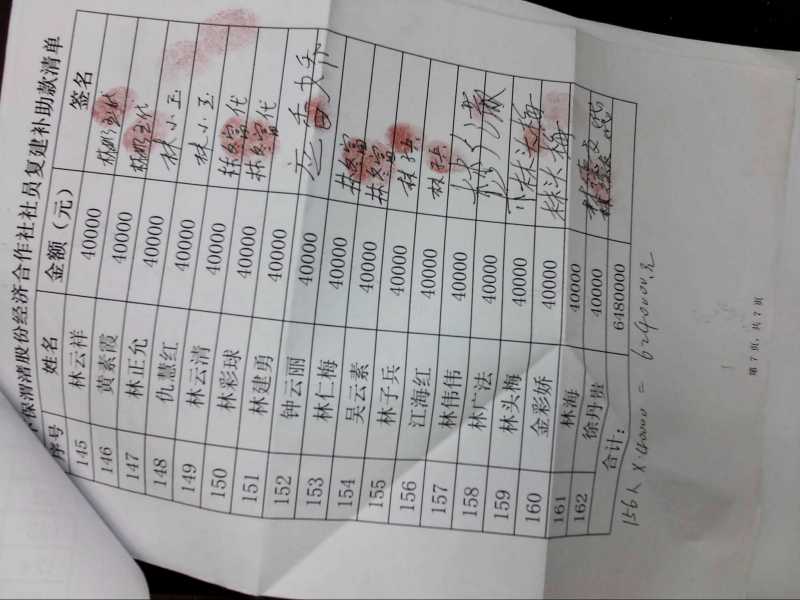 保渭渚股份经济合作社社员复建补助款清单
序号 姓名 金额（元） 签名
145 林云祥 40000
146 黄素霞 40000
147 林正允 40000 林小玉
148 仇慧红 40000 林小玉
149 林云清 40000 林冬富代
150 林彩球 40000 林冬富代
151 林建勇 40000
152 钟云丽 40000
153 林仁梅 40000 林冬富
154 吴云素 40000 林冬富
155 林子兵 40000
156 江海红 40000
157 林伟伟 40000
158 林广法 40000
159 林头梅 40000 林头梅
160 金彩娇 40000 林头梅
161 林海 40000
162 徐丹贵 40000
合计： 6480000
156人×40000=6240000元
第 7 页，共 7 页